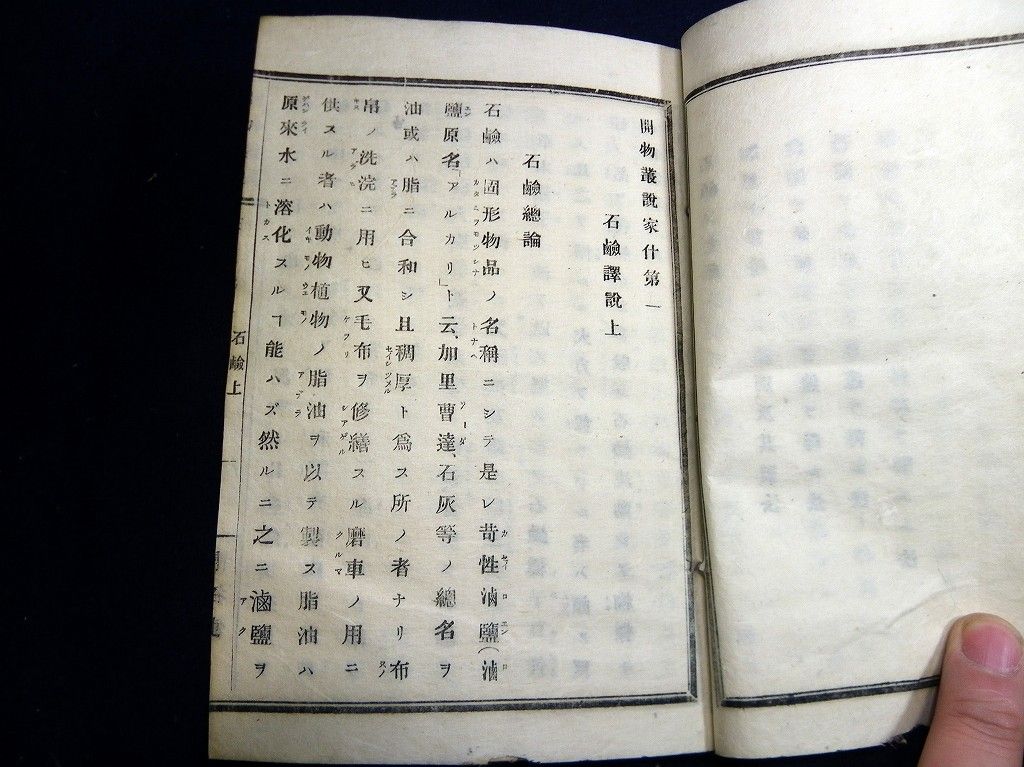 開物叢說家什第一
石鹼譯說上
石鹼總論
石鹼ハ固形物品ノ名稱ニシテ是レ苛性滷鹽(滷
鹽原名「アルカリ」ト云、加里曹達、石灰等ノ總名ヲ
油或ハ脂ニ合和シ且稠厚ト爲ス所ノ者ナリ布
帛ノ洗浣ニ用ヒ又毛布ヲ修繕スル磨車ノ用ニ
供スル者ハ動物植物ノ脂油ヲ以テ製ス脂油ハ
原來水ニ溶化スルヿ能ハズ然ルニ之ニ滷鹽ヲ
石鹼上